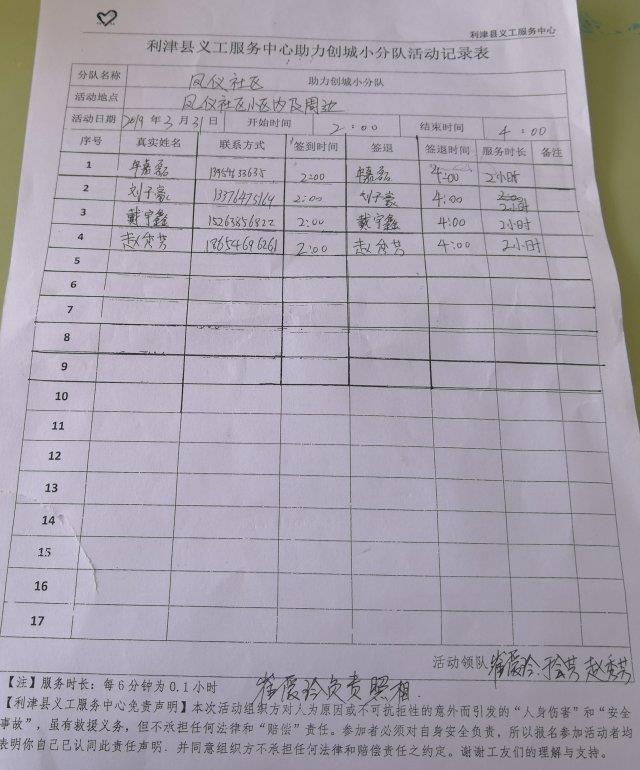 利津县义工服务中心
利津县义工服务中心助力创城小分队活动记录表
分队名称 凤仪社区 助力创城小分队
活动地点 凤仪社区小区内及周边
活动日期 2019年3月31日 开始时间 2:00 结束时间 4:00
序号 真实姓名 联系方式 签到时间 签退 签退时间 服务时长 备注
1 牟嘉磊 2:00 牟嘉磊 4:00 2小时
2 刘子豪 13376475169 2:00 刘子豪 4:00 2小时
3 戴宇鑫 15263856822 2:00 戴宇鑫 4:00 2小时
4 赵秀芳 13654696261 2:00 赵秀芳 4:00 2小时
5
6
7
8
9
10
11
12
13
14
15
16
17
活动领队 崔爱玲 赵秀芳
【注】服务时长：每6分钟为0.1小时 崔爱玲负责照相.
【利津县义工服务中心免责声明】本次活动组织方对人为原因或不可抗拒性的意外而引发的“人身伤害”和“安全
事故”，虽有救援义务，但不承担任何法律和“赔偿”责任。参加者必须对自身安全负责，所以报名参加活动者均
表明你自己已认同此责任声明．并同意组织方不承担任何法律和赔偿责任之约定。谢谢工友们的理解与支持。